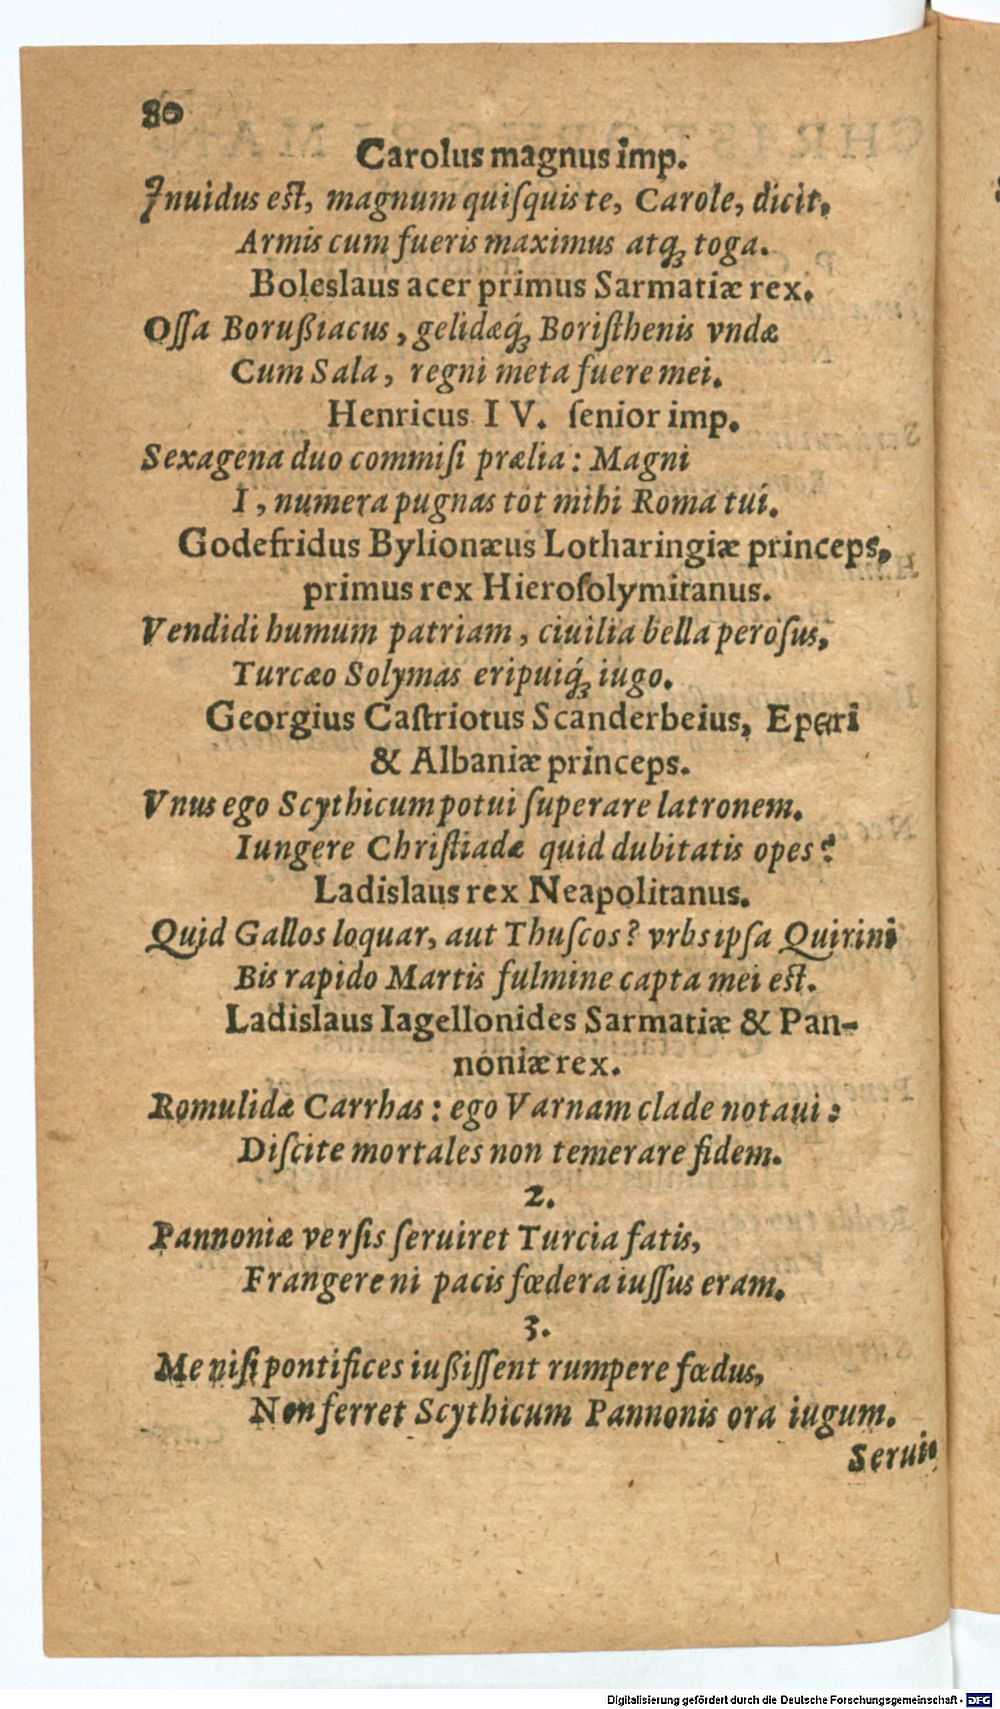 80
Carolus magnus imp.
Inuidus est, magnum quiſquis te, Carole, dicit,
Armis cum fueris maximus atq́ꝫ toga.
Boleslaus acer primus Sarmatiæ rex.
Oſſa Borußiacus, gelidæq́ꝫ Boriſthenis vndæ
Cum Sala, regni meta fuere mei.
Henricus IV. ſenior imp.
Sexagena duo commiſi prælia: Magni
I, numera pugnas tot mihi Roma tui.
Godefridus Bylionæus Lotharingiæ princeps,
primus rex Hieroſolymitanus.
Vendidi humum patriam, ciuilia bella peroſus,
Turcæo Solymas eripuiq́ꝫ iugo.
Georgius Caſtriotus Scanderbeius, Eperi
& Albaniæ princeps.
Vnus ego Scythicum potui ſuperare latronem.
Iungere Chriſtiadæ quid dubitatis opes?
Ladislaus rex Neapolitanus.
Quid Gallos loquar, aut Thuſcos? vrbs ipſa Quirini
Bis rapido Martis fulmine capta mei eſt.
Ladislaus Iagellonides Sarmatiæ & Pan-
noniæ rex.
Romulidæ Carrhas: ego Varnam clade notaui:
Diſcite mortales non temerare fidem.
2.
Pannoniæ verſis ſeruiret Turcia fatis,
Frangere ni pacis fœdera iuſſus eram.
3.
Me niſi pontifices iußiſſent rumpere fœdus,
Non ferret Scythicum Pannonis ora iugum.
Serui
Digitalisierung gefördert durch die Deutsche Forschungsgemeinschaft - DFG